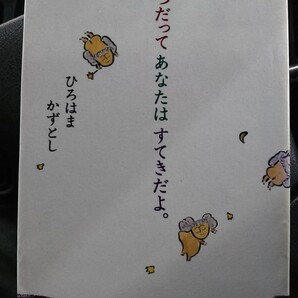 だって あなたは すてきだよ。
ひろはま
かずとし